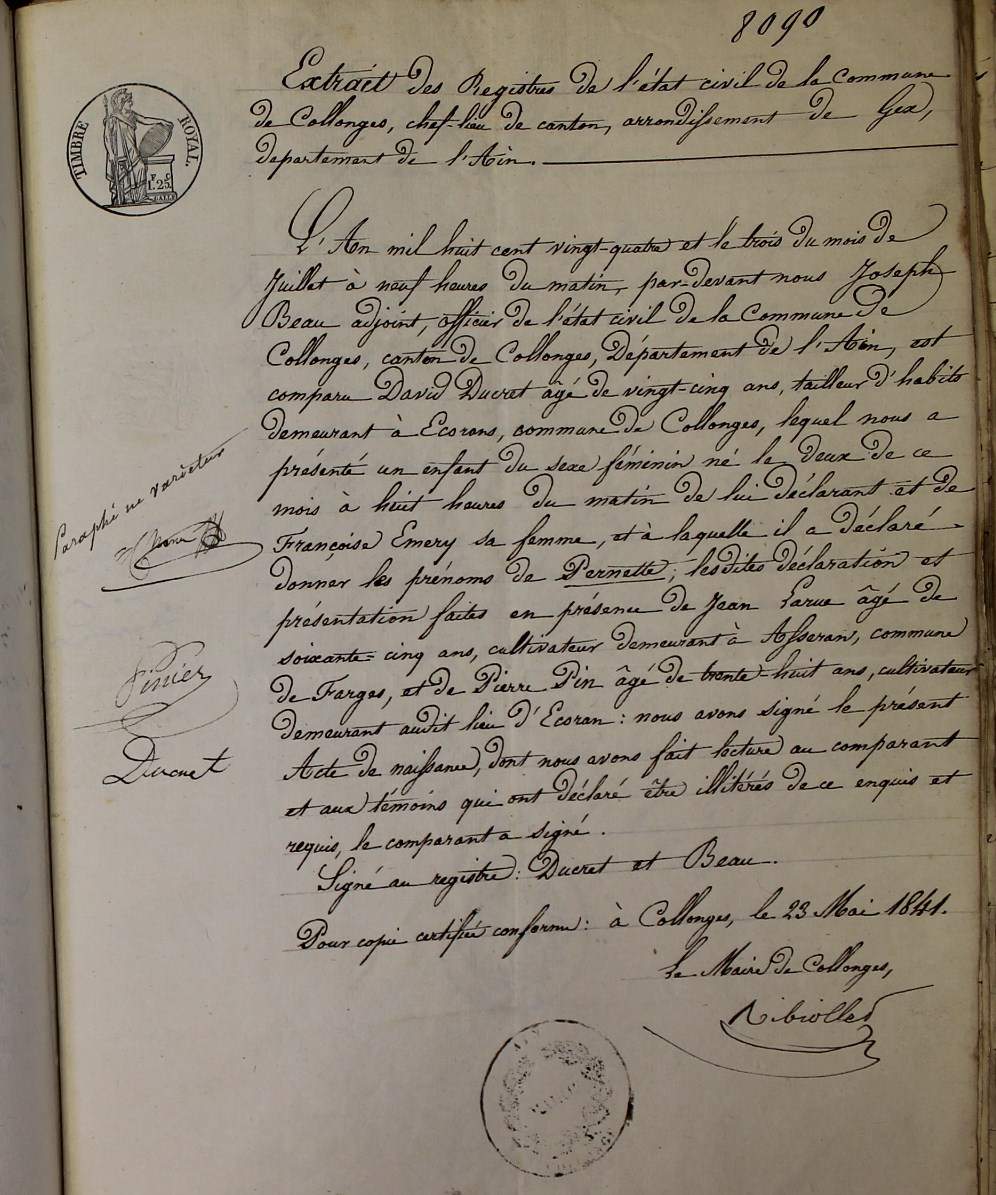 8090
TIMBRE ROYAL.
F. C.
1.25.
Extrait des Registres de l'état civil de la Commune
de Collonges, chef-lieu de canton, arrondissement de Gex,
departement de l'Ain.
L'An mil huit cent vingt-quatre et le trois du mois de
Juillet à neuf heures du matin, par-devant nous Joseph
Beau adjoint, officier de l'état civil de la Commune de
Collonges, canton de Collonges, Département de l'Ain, est
comparu David Ducret âgé de vingt-cinq ans, tailleur d'habits
demeurant à Ecorans, commune de Collonges, lequel nous a
présenté un enfant du sexe féminin né le deux de ce
mois à huit heures du matin de lui déclarant et de
Françoise Emery sa femme, et à laquelle il a déclaré
donner les prénoms de Pernette; lesdites déclaration et
présentation faites en présence de Jean Larue âgé de
soixante-cinq ans, cultivateur demeurant à Asseran, commune
de Farges, et de Pierre Pin âgé de trente-huit ans, cultivateur
demeurant audit lieu d'Ecoran: nous avons signé le présent
Acte de naissance, dont nous avons fait lecture au comparant
et aux témoins qui ont déclaré être illitérés de ce enquis et
requis, le comparant a signé.
Signé au registre: Ducret et Beau.
Pour copie certifiée conforme: à Collonges, le 23 Mai 1841.
Le Maire de Collonges,
Paraphé ne varietur
Ducret
AIN